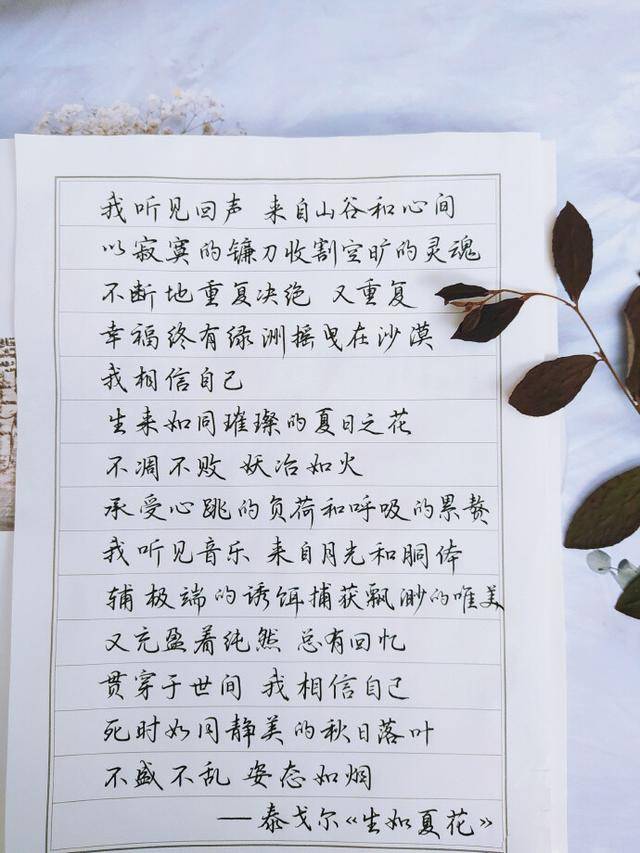 我听见回声 来自山谷和心间
以寂寞的镰刀收割空旷的灵魂
不断地重复决绝 又重复
幸福终有绿洲摇曳在沙漠
我相信自己
生来如同璀璨的夏日之花
不凋不败 妖冶如火
承受心跳的负荷和呼吸的累赘
我听见音乐 来自月光和胴体
辅极端的诱饵捕获飘渺的唯美
又充盈着纯然 总有回忆
贯穿于世间 我相信自己
死时如同静美的秋日落叶
不盛不乱 姿态如烟
——泰戈尔《生如夏花》